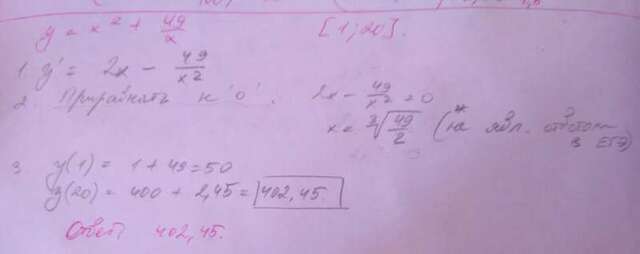 y = x² + 49/x [1; 20].
1. y' = 2x − 49/x²
2. Приравнять к '0'. 2x − 49/x² = 0
x = ∛(49/2) (не явл. ответом
в ЕГЭ)
3. y(1) = 1 + 49 = 50
y(20) = 400 + 2,45 = 402,45.
Ответ: 402,45.